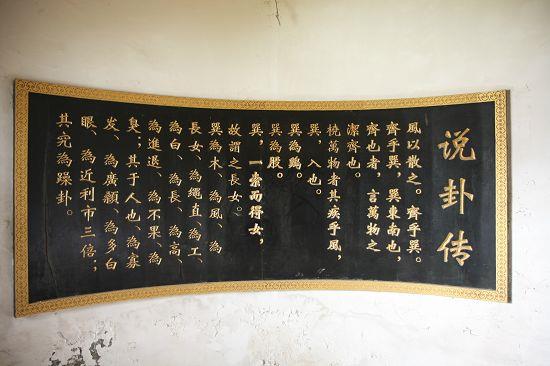 说卦传
風以散之。 齊乎巽。
齊乎巽，巽東南也，
齊也者，言萬物之
潔齊也。
橈萬物者莫疾乎風，
巽，入也。
巽為鷄。
巽為股。
巽，一索而得女，
故謂之長女。
巽為木、為風、為
長女、為繩直、為工、
為白、為長、為高、
為進退、為不果、為
臭；其于人也、為寡
发、為廣顙、為多白
眼、為近利市三倍；
其究為躁卦。